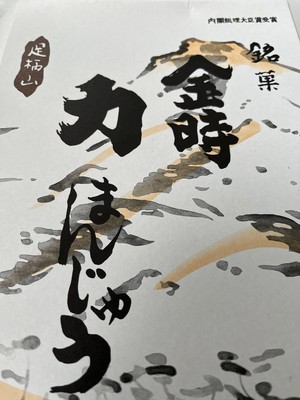 内閣総理大臣賞受賞
銘菓
金時
力
まんじゅう
足柄山